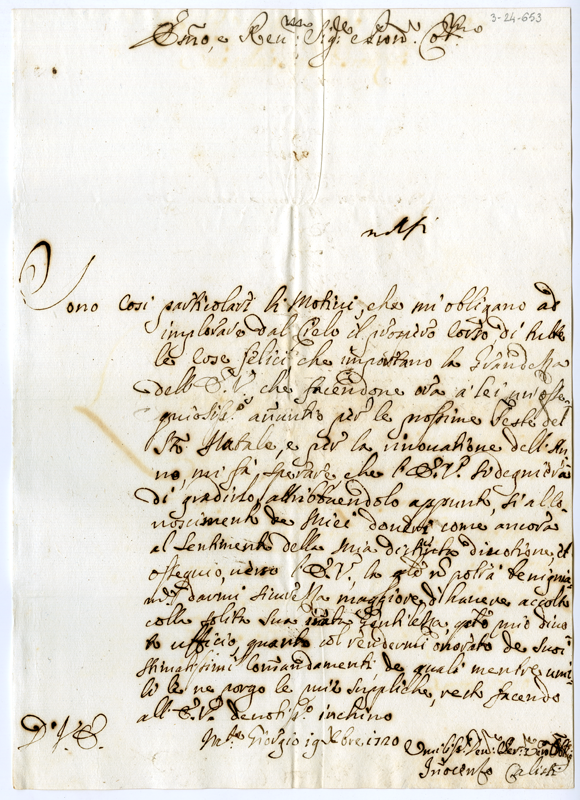 3-24-653
Sono Cosi particolari li Motivi, che mi obligano ad
implorare dal Cielo il primiero Corso di tutte
le Cose felici che importano la Grandezza
dell' V.S. che facendone ora a lei un osse-
quiosis.° annuntio per le prossime Feste del
St° Natale, e per la rinovatione dell' An-
no, mi fà sperare, che V.S. si degnierà
di gradirlo, attribuendolo appunto, si al Co-
noscimento de Miei doveri come ancora
al Sentimento della mia distinta divotione, et
ossequio, verso V.S., la potrà benigna
darmi maggiore, d'havere accolto
colla solita Sua Gentilezza mio divo-
to ufficio, quanto col rendermi onorato de Suoi
Stimatissimi Comandamenti, de quali mentre umi-
le ne porgo le mie Suppliche, resto facendo
all' V.S. inchino
D. V. S.
Giorgio 19 Xbre 1720
Innocenso Calisti